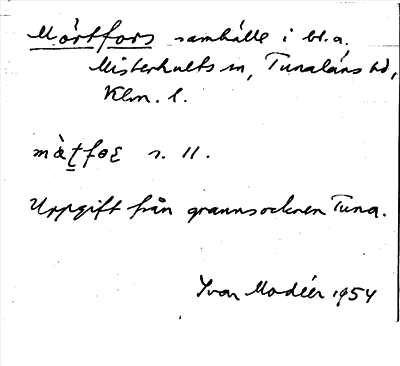 Mörtfors samhälle i bl.a.
Misterhults sn, Tunaläns hd,
Klm. l.
s. 11.
Uppgift från grannsocknen Tuna.
Ivar Modéer 1954